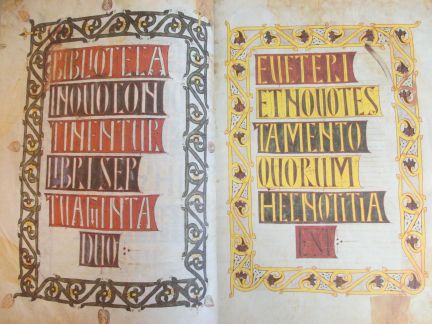 BIBLIOTECA
INQUOCON
TINENTUR
LIBRI SEP
TUAGINTA
DUO
EVETERI
ETNOVOTES
TAMENTO
QUORUM
HECNOTITIA